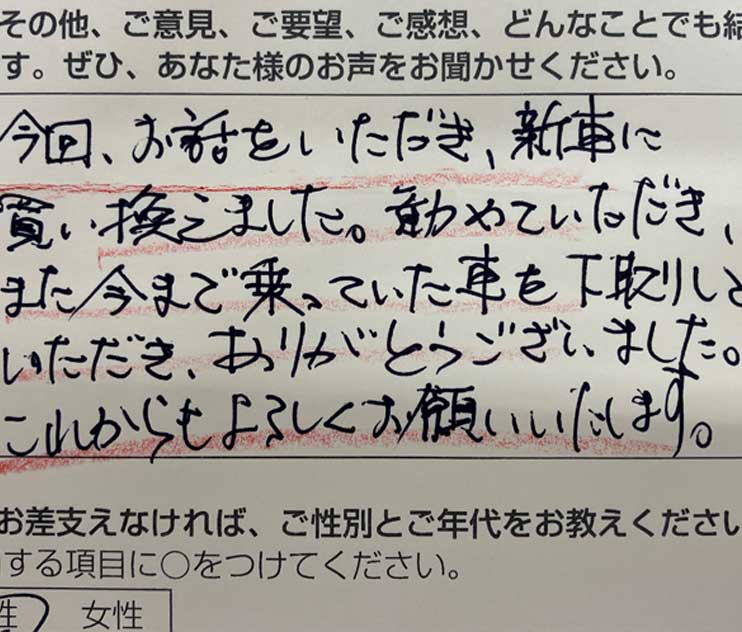 その他、ご意見、ご要望、ご感想、どんなことでも結
す。ぜひ、あなた様のお声をお聞かせください。
今回、お話をいただき、新車に
買い換えました。勧めていただき、
また今まで乗っていた車を下取りして
いただき、ありがとうございました。
これからもよろしくお願いいたします。
お差支えなければ、ご性別とご年代をお教えください
する項目に○をつけてください。
性 女性